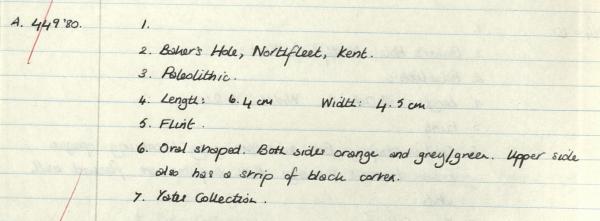 A. 449'80. 1.
2. Baker's Hole, Northfleet, Kent.
3. Paleolithic.
4. Length: 6.4 cm Width: 4.5 cm
5. Flint.
6. Oval shaped. Both sides orange and grey/green. Upper side
also has a strip of black cortex.
7. Yates Collection.